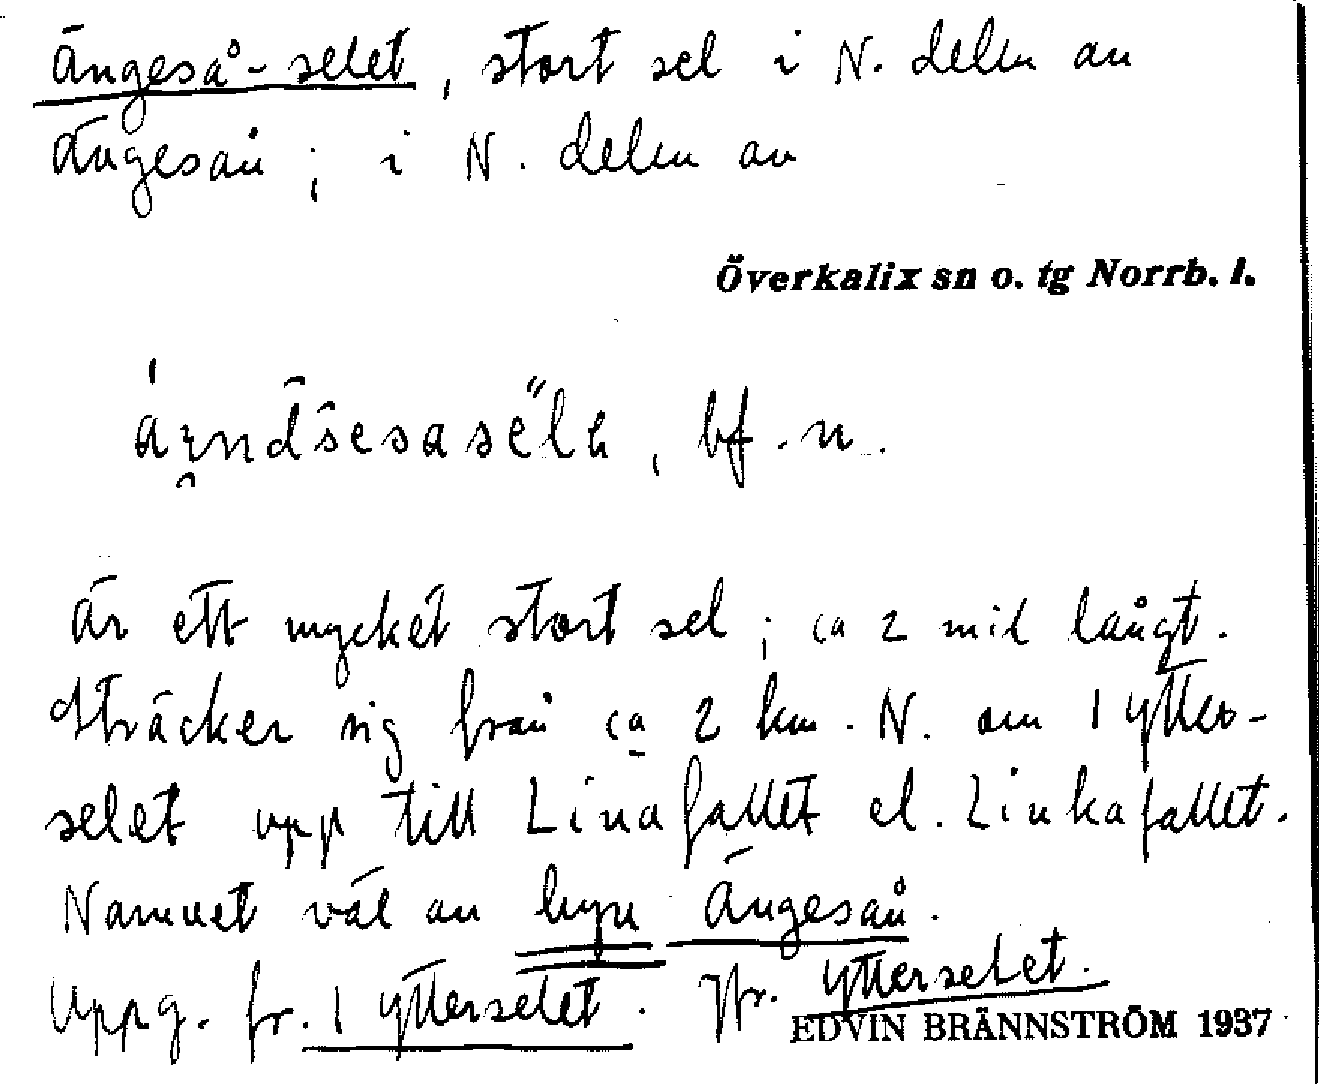 Ängeså-selet, stort sel i N. delen av
Ängesån; i N. delen av
Överkalix sn o. tg Norrb. l.
bf. n.
är ett mycket stort sel; ca 2 mil långt.
Sträcker sig från ca 2 km. N. om 1 Ytter-
selet upp till Linafallet el. Linkafallet.
Namnet väl av Ängesån.
Uppg. fr. 1 Ytterselet. Jfr. Ytterselet.
EDVIN BRÄNNSTRÖM 1937